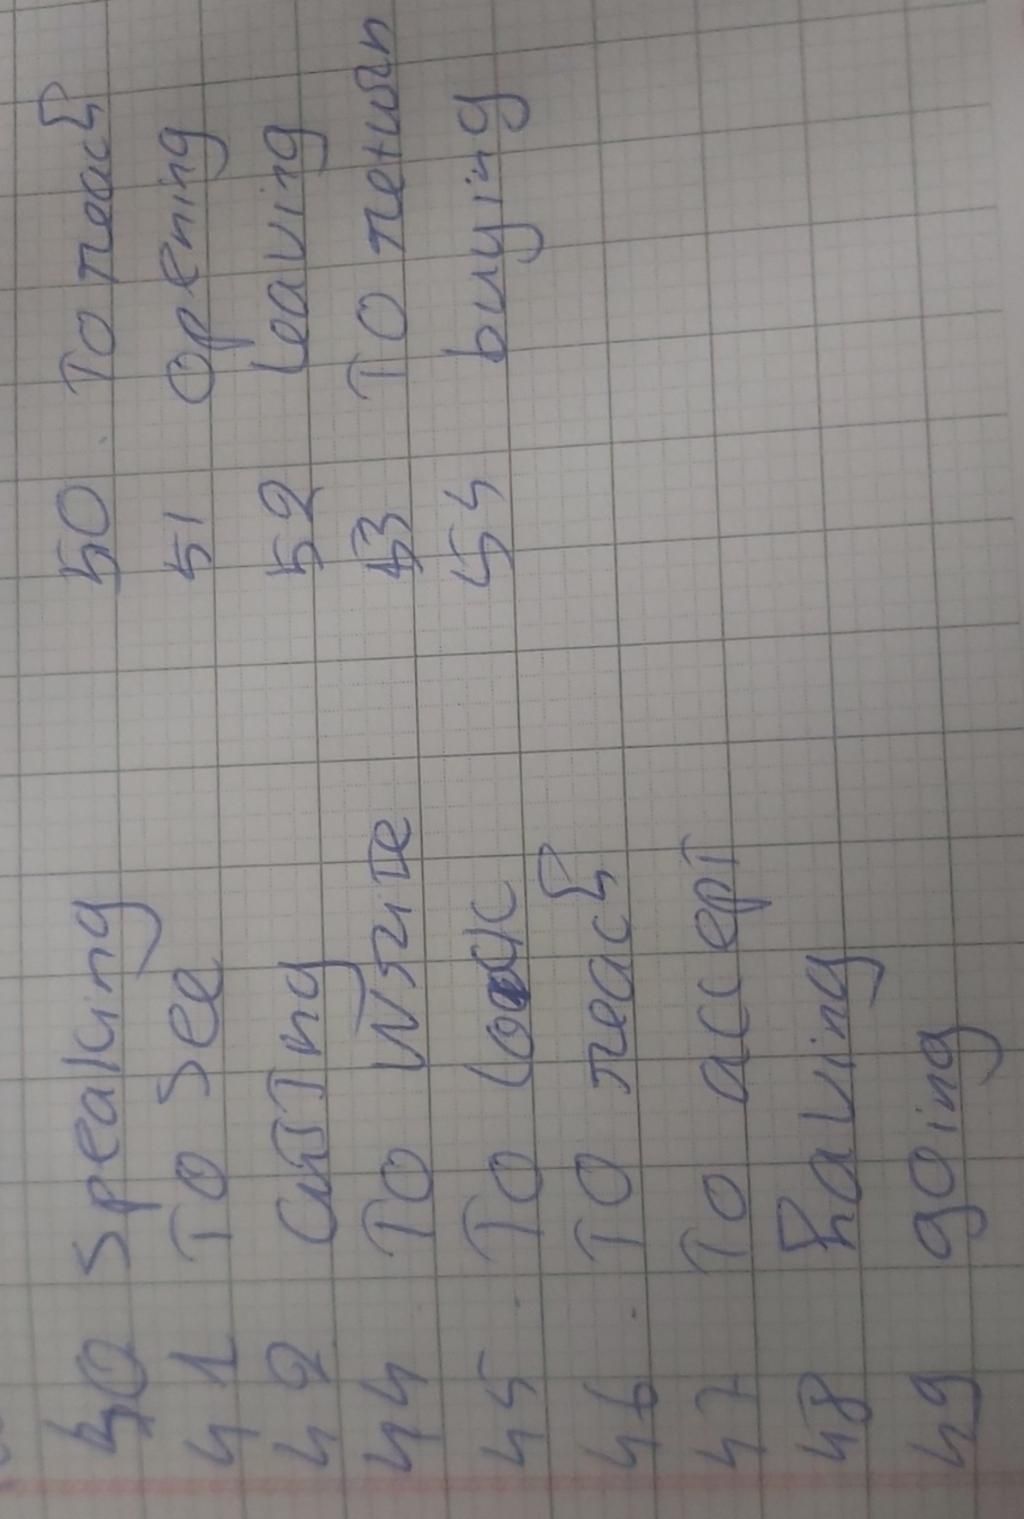 40 Speaking
41 To See
42 CuTTing
44 To Write
45. To Lock
46. To reach
47 To accept
48 having
49 going
50. To reach
51 Opening
52 Leaving
53 To return
54 buying